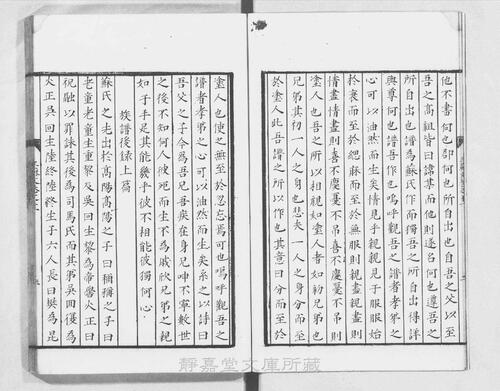 他不書何也郤何也所自出也自吾之父以至
吾之高祖皆曰諱某而他則遂名何也遵吾之
所自出也譜爲蘇氏作而獨吾之所自出得詳
與尊何也譜吾作也嗚呼觀吾之譜者孝弟之
心可以油然而生矣情見乎親親見于服服始
於衰而至於緦麻而至於無服則親盡親盡則
情盡情盡則喜不慶憂不吊喜不慶憂不吊則
塗人也吾之所以相視如塗人者如初兄弟也
兄弟其初一人之身也悲夫一人之身分而至
於塗人此吾譜之所以作也其意曰分而至於
塗人也使之無至於忽忘焉可也嗚呼觀吾之
譜者孝弟之心可以油然而生矣系之以詩曰
吾父之子今爲吾兄吾疾在身兄呻不寧數世
之後不知何人彼死而生不爲戚欣兄弟之親
如手于足其能幾乎彼不相能彼獨何心
族譜後錄上篇
蘇氏之先出於高陽高陽之子曰稱稱之子曰
老童老童生重黎及吳回生黎爲帝嚳火正曰
祝融以罪誅其後爲司馬氏而其弟吳回復爲
火正吳回生陸終陸終生子六人長曰樊爲昆
靜嘉堂文庫所藏